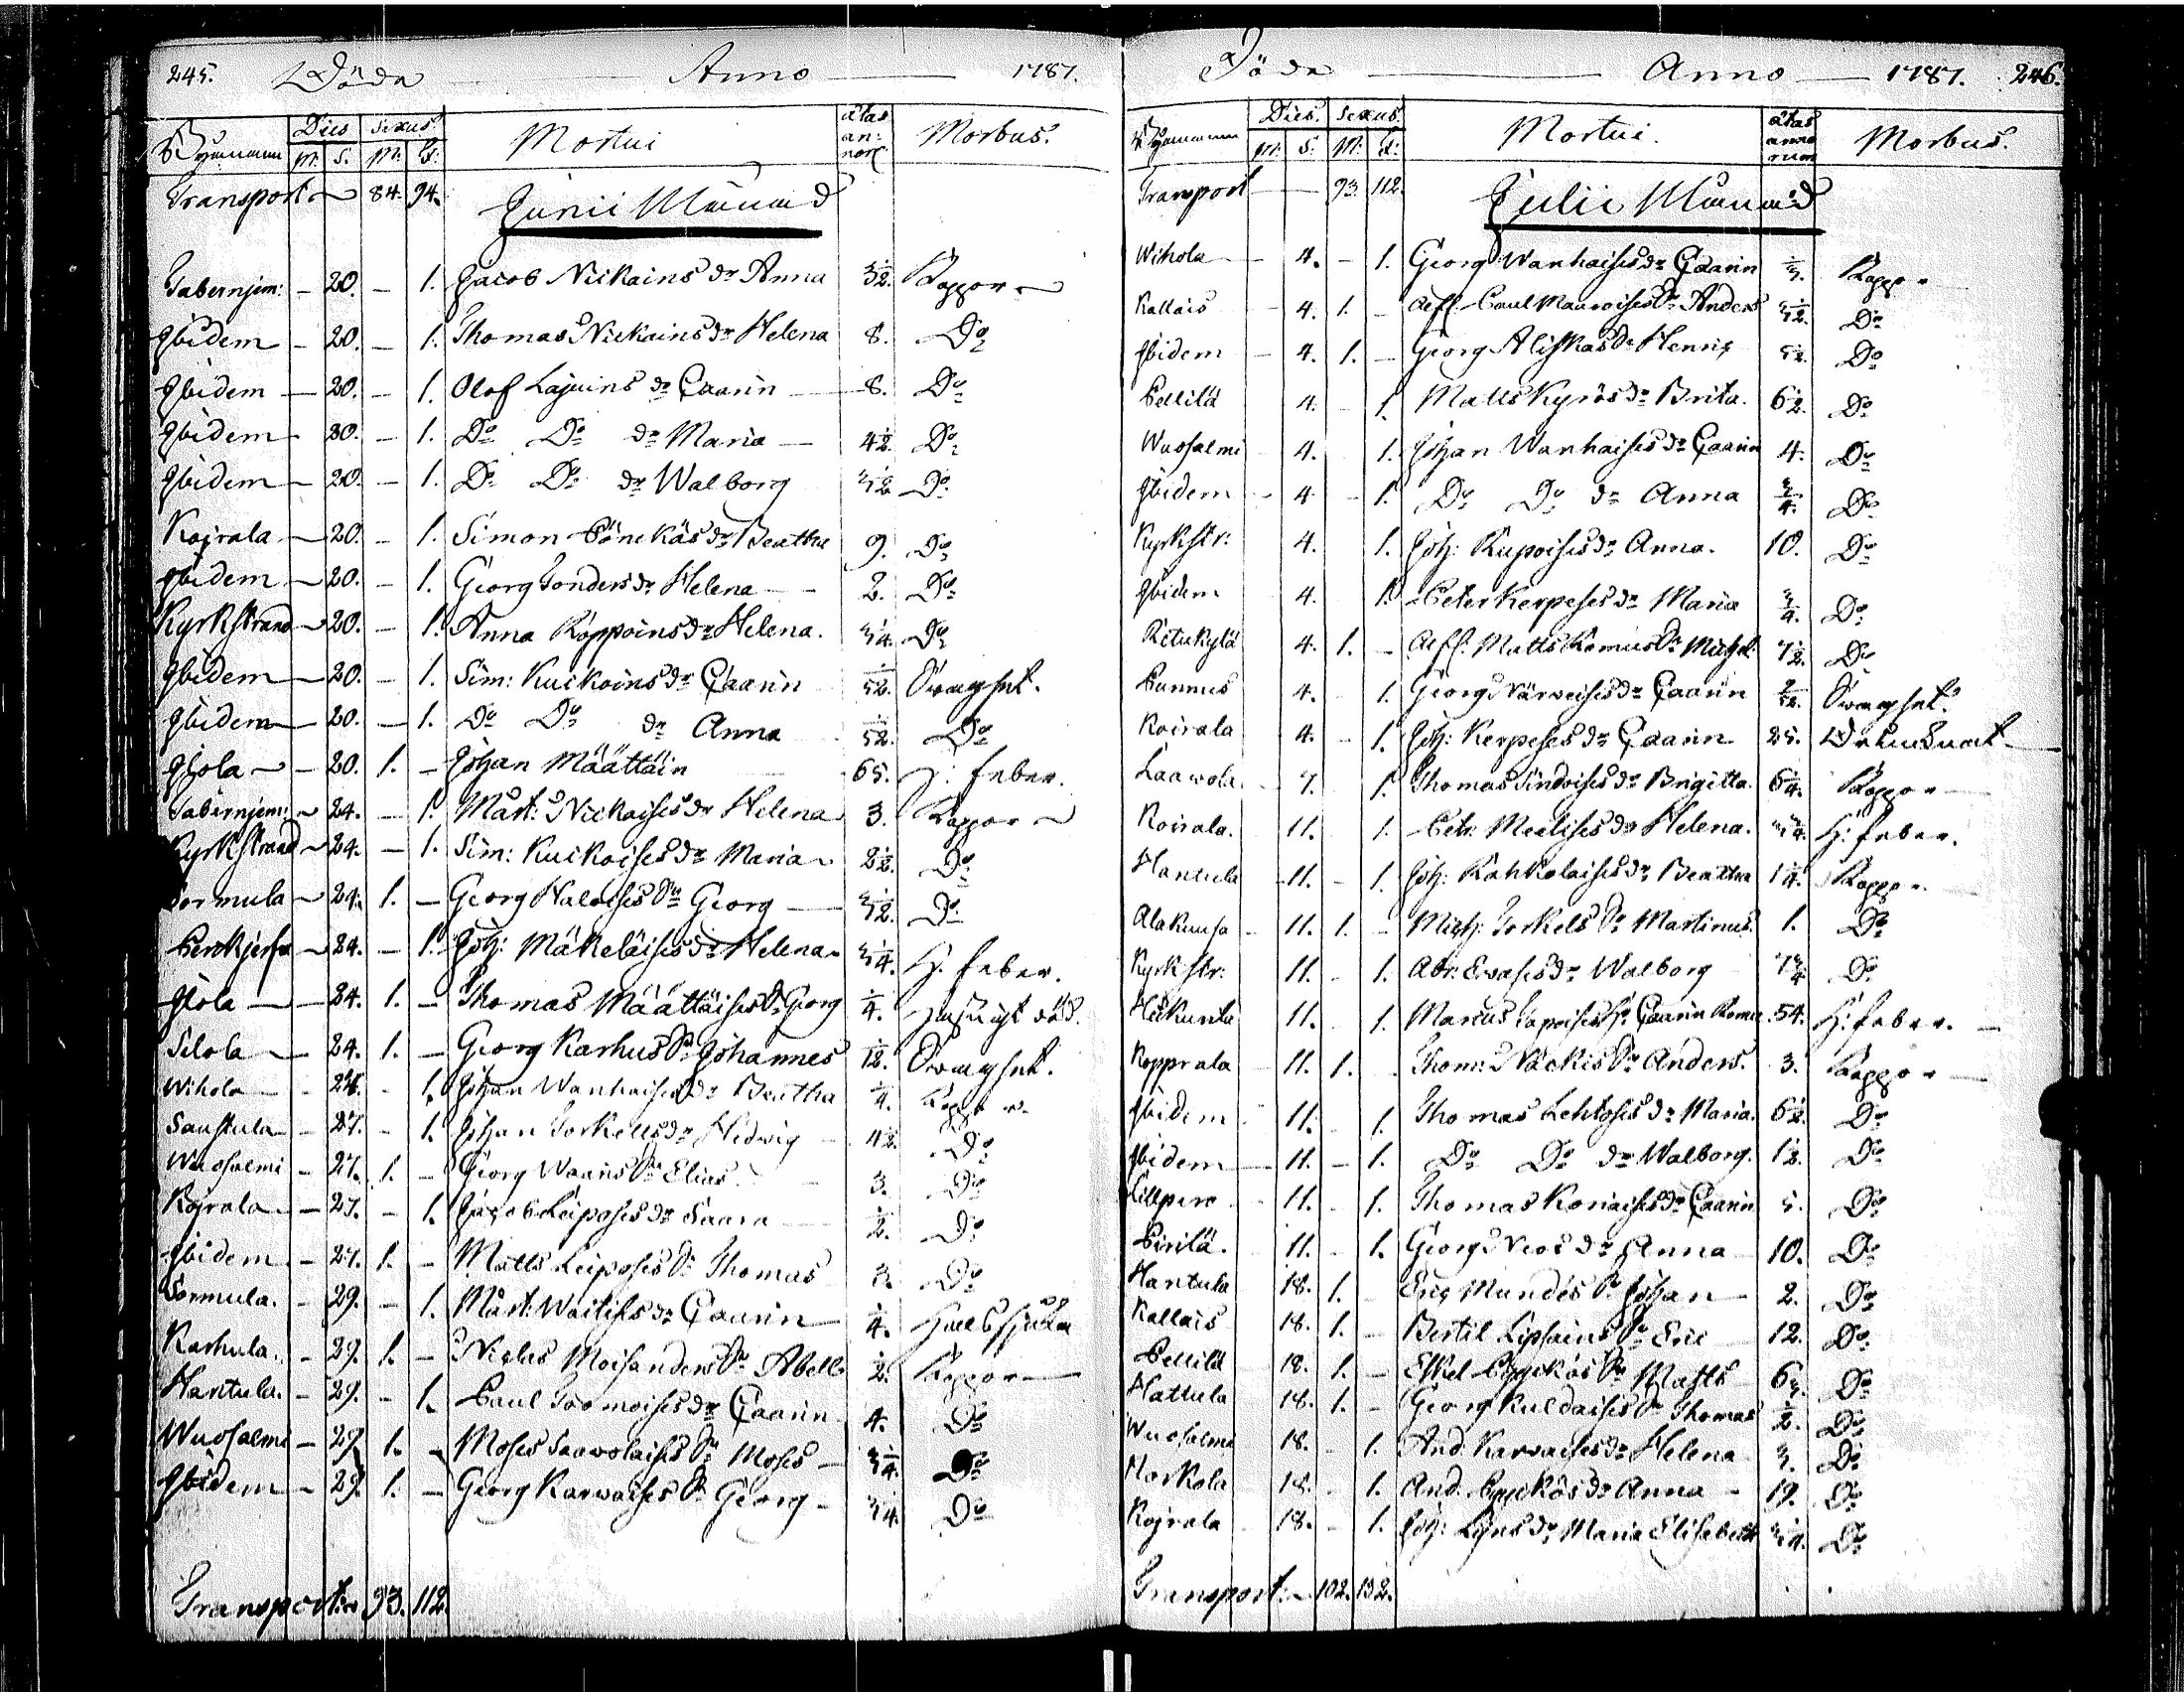 245. Döda Anno 1787.
Dies Sexus ætas
Mortui an: Morbus.
M: S. M: norũ
Transport 84. 94. Junii Månad
Tabernjem: 20. 1. Jacob Nickains dr Anna Koppor
Ibidem 20. 1. Thomas Nickains dr Helena 8. Do
Ibidem 20. 1. Olof Lajuins dr Caarin 8. Do
Ibidem 20. 1. Do Do dr Maria 4½. Do
Ibidem 20. 1. Do Do dr Walborg Do
Kojrala 20. 1. Simon Pönckäs dr Beatha 9. Do
Ibidem 20. 1. Georg Tonders dr Helena 2. Do
Kyrkstrand 20. 1. Anna Roppoins dr Helena. Do
Ibidem 20. 1. Sim: Kuikoins dr Caarin 1/52.
Ibidem 20. 1. Do Do dr Anna 1/52. Do
20. 1. Johan Määttäin 65. H: feber.
Tabernjem: 24. 1. Mårt: Nickaises dr Helena 3. Koppor
Kyrkstrand 24. 1. Sim: Kuikoises dr Maria 2½. Do
Sormula 24. 1. Georg Haloises Sn Georg Do
24. 1. Joh: Mäkeläises dr Helena H. feber.
24. 1. Thomas Määttäises Sn Georg ¼. död.
Silola 24. 1. Georg Karhus Sn Johannes 1/12.
Wihola 24. 1. Johan Wanhaises dr Beatha ¼. Koppor
Saustula 27. 1. Johan Torkells dr Hedwig 4½. Do
Wuosalmi 27. 1. Georg Waains Sn Elias 3. Do
Kojrala 27. 1. Jacob Leiposes dr Saara ½. Do
Ibidem 27. 1. Matts Leiposes Sn Thomas 3. Do
Sormula. 29. 1. Mårt: Waitises dr Caarin ¼. Halssjuka
Karhula. 29. 1. Niclas Moisanders Sn Abell ½. Koppor
Hantula. 29. 1. Paul Tiomoises dr Caarin 4. Do
Wuosalmi 29. 1. Moses Saawolaises Sn Moses Do
Ibidem 29. 1. Georg Karwaises Sn Georg Do
Transport: 93. 112.
Döda Anno 1787. 246.
Dies. Sexus. ætas
Mortui. anno Morbus.
M: S: M: rum
Transport 93. 112. Julii Månad
Wihola 4. 1. Georg Wanhaises dr Caarin Koppor
Kallais 4. 1. Aff. Paul Maaroises Sn Anders Do
Ibidem 4. 1. Georg Aliskas Sn Henric Do
Pellilä 4. 1. Matts Kyrös dr Brita. 6½. Do
Wuosalmi 4. 1. Johan Wanhaises dr Caarin 4. Do
Ibidem 4. 1. Do Do dr Anna ¾. Do
Kyrkstr: 4. 1. Joh: Kupoises dr Anna. 10. Do
Ibidem 4. 1. Peter Kerpeses dr Maria ¾. Do
Ritukylä 4. 1. Aff. Matts Romus Sn Michel. 7½. Do
Punnus 4. 1. Georg Närweises dr Caarin
Koirala 4. 1. Joh: Kerpeses dr Caarin 25.
Laawola 7. 1. Thomas Sindoises dr Brigitta. 6¼. Koppor
Koirala. 11. 1. Petr. Meelises dr Helena. H: feber.
Hantula 11. 1. Joh: Rahkolaises dr Beatha 1¼. Koppor
Alakuusa 11. 1. Mich: Torkels Sn Martinus. 1. Do
Kyrkstr: 11. 1. Abr: Ewases dr Walborg Do
11. 1. Marcus Caarin 54. H: feber.
Kopprala 11. 1. Thom: Näckis Sn Anders. 3. Koppor
Ibidem 11. 1. Thomas Lehtoses dr Maria. 6½. Do
Ibidem 11. 1. Do Do dr Walborg. 1½. Do
11. 1. Thomas Koriaises dr Caarin 5. Do
Pirilä. 11. 1. Georg Neos dr Anna 10. Do
Hantula 18. 1. Eric Mundés Sn Johan 2. Do
Kallais 18. 1. Bertil Lipsains Sn Eric 12. Do
Pellilä 18. 1. Eskel Pyyckös Sn Matts Do
Hattula 18. 1. Georg Kuldaises Sn Thomas ½. Do
Wuosalmi 18. 1. And: Karwaises dr Helena 3. Do
Norkola 18. 1. And. Pyyckös dr Anna 19. Do
Kojrala 18. 1. Joh: dr Maria Elisabeth Do
Transport: 102. 132.